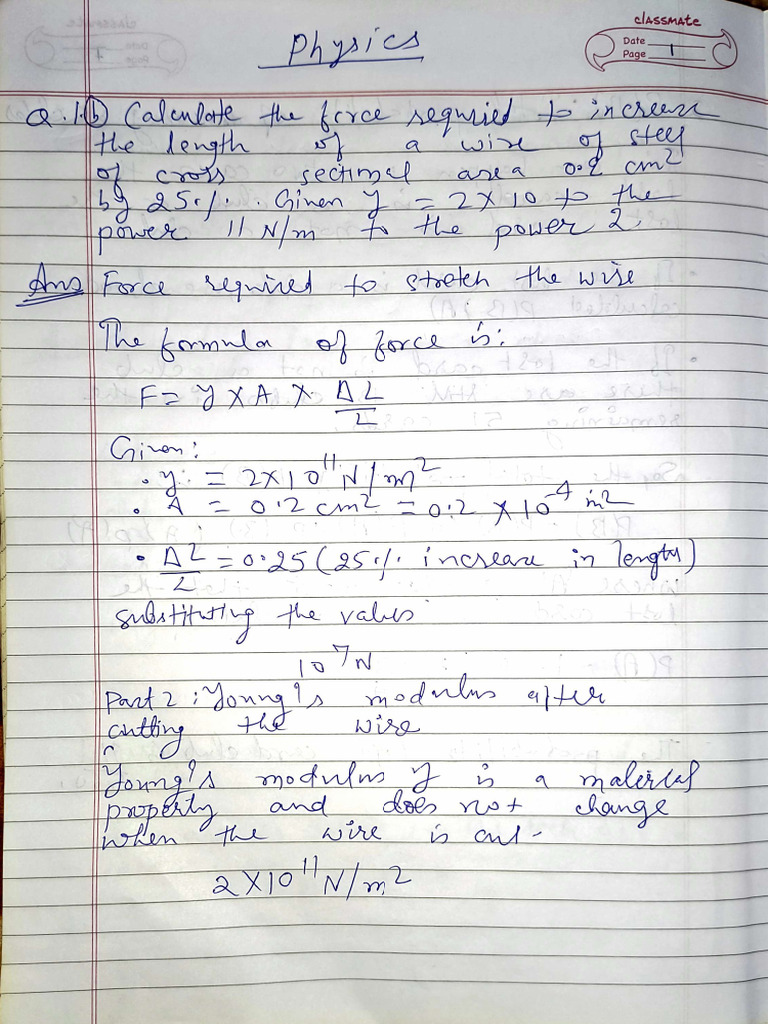 classmate
Date
Page 1
Physics
Q.1.(b) Calculate the force requried to increase
the length of a wire of steel
of cross sectional area 0.2 cm²
by 25%. Given y = 2 X 10 to the
power 11 N/m to the power 2.
Ans Force required to stretch the wire
The formula of force is:
F = y X A X ΔL/L
Given:
• y = 2X10¹¹ N/m²
• A = 0.2 cm² = 0.2 X 10⁻⁴ m²
• ΔL/L = 0.25 (25% increase in length)
substituting the values
10⁷N
Part 2: Young's modulus after
cutting the wire
Young's modulus y is a material
property and does not change
when the wire is cut.
2X10¹¹ N/m²